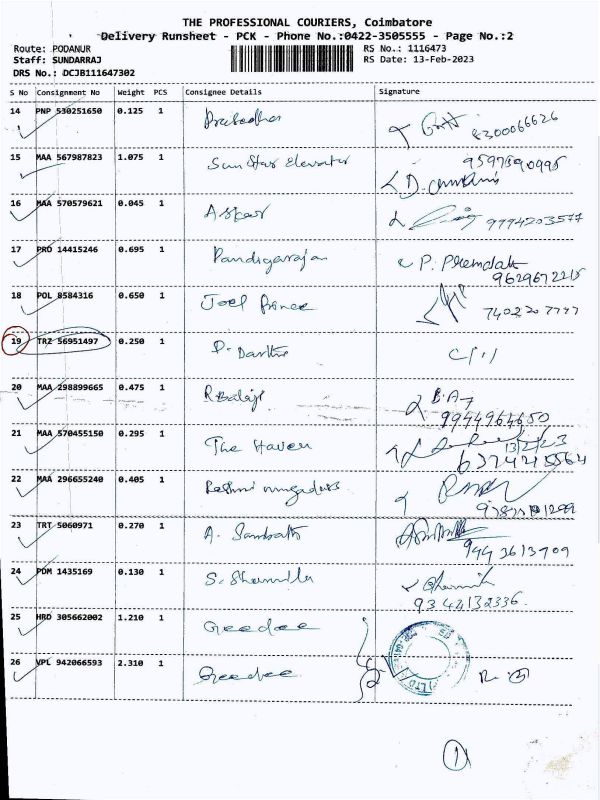 THE PROFESSIONAL COURIERS, Coimbatore
Delivery Runsheet - PCK - Phone No.:0422-3505555 - Page No.:2
Route: PODANUR RS No.: 1116473
Staff: SUNDARRAJ RS Date: 13-Feb-2023
DRS No.: DCJB111647302
S No Consignment No Weight PCS Consignee Details Signature
14 PNP 530251650 0.125 1 8300066626
15 MAA 567987823 1.075 1 Sun Star Elevator
16 MAA 570579621 0.045 1 Asker
17 PRO 14415246 0.695 1 Pandigarajan P.
9629672215
18 POL 8584316 0.650 1 Joel Prince
19 TRZ 56951497 0.250 1 P.
20 MAA 298899665 0.475 1 R Balaji
9944964650
21 MAA 570455150 0.295 1 The Haven 13/2/23
6374215564
22 MAA 296655240 0.405 1
23 TRT 5060971 0.270 1 A. Sambath
9443613709
24 PDM 1435169 0.130 1 S. Sharmila
9344132336
25 HRD 305662002 1.210 1 Geedee
26 VPL 942066593 2.310 1 Geedee
1